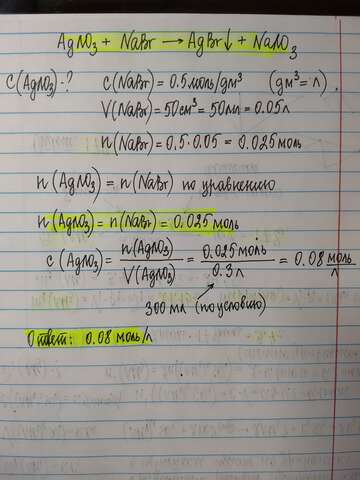 AgNO₃ + NaBr → AgBr↓ + NaNO₃
C(AgNO₃)=? C(NaBr) = 0.5 моль/дм³ (дм³ = л)
V(NaBr) = 50 см³ = 50 мл = 0.05 л
n(NaBr) = 0.5 · 0.05 = 0.025 моль
n(AgNO₃) = n(NaBr) по уравнению
n(AgNO₃) = n(NaBr) = 0.025 моль
C(AgNO₃) = n(AgNO₃)/V(AgNO₃) = 0.025 моль/0.3 л = 0.08 моль/л
300 мл (по условию)
Ответ: 0.08 моль/л